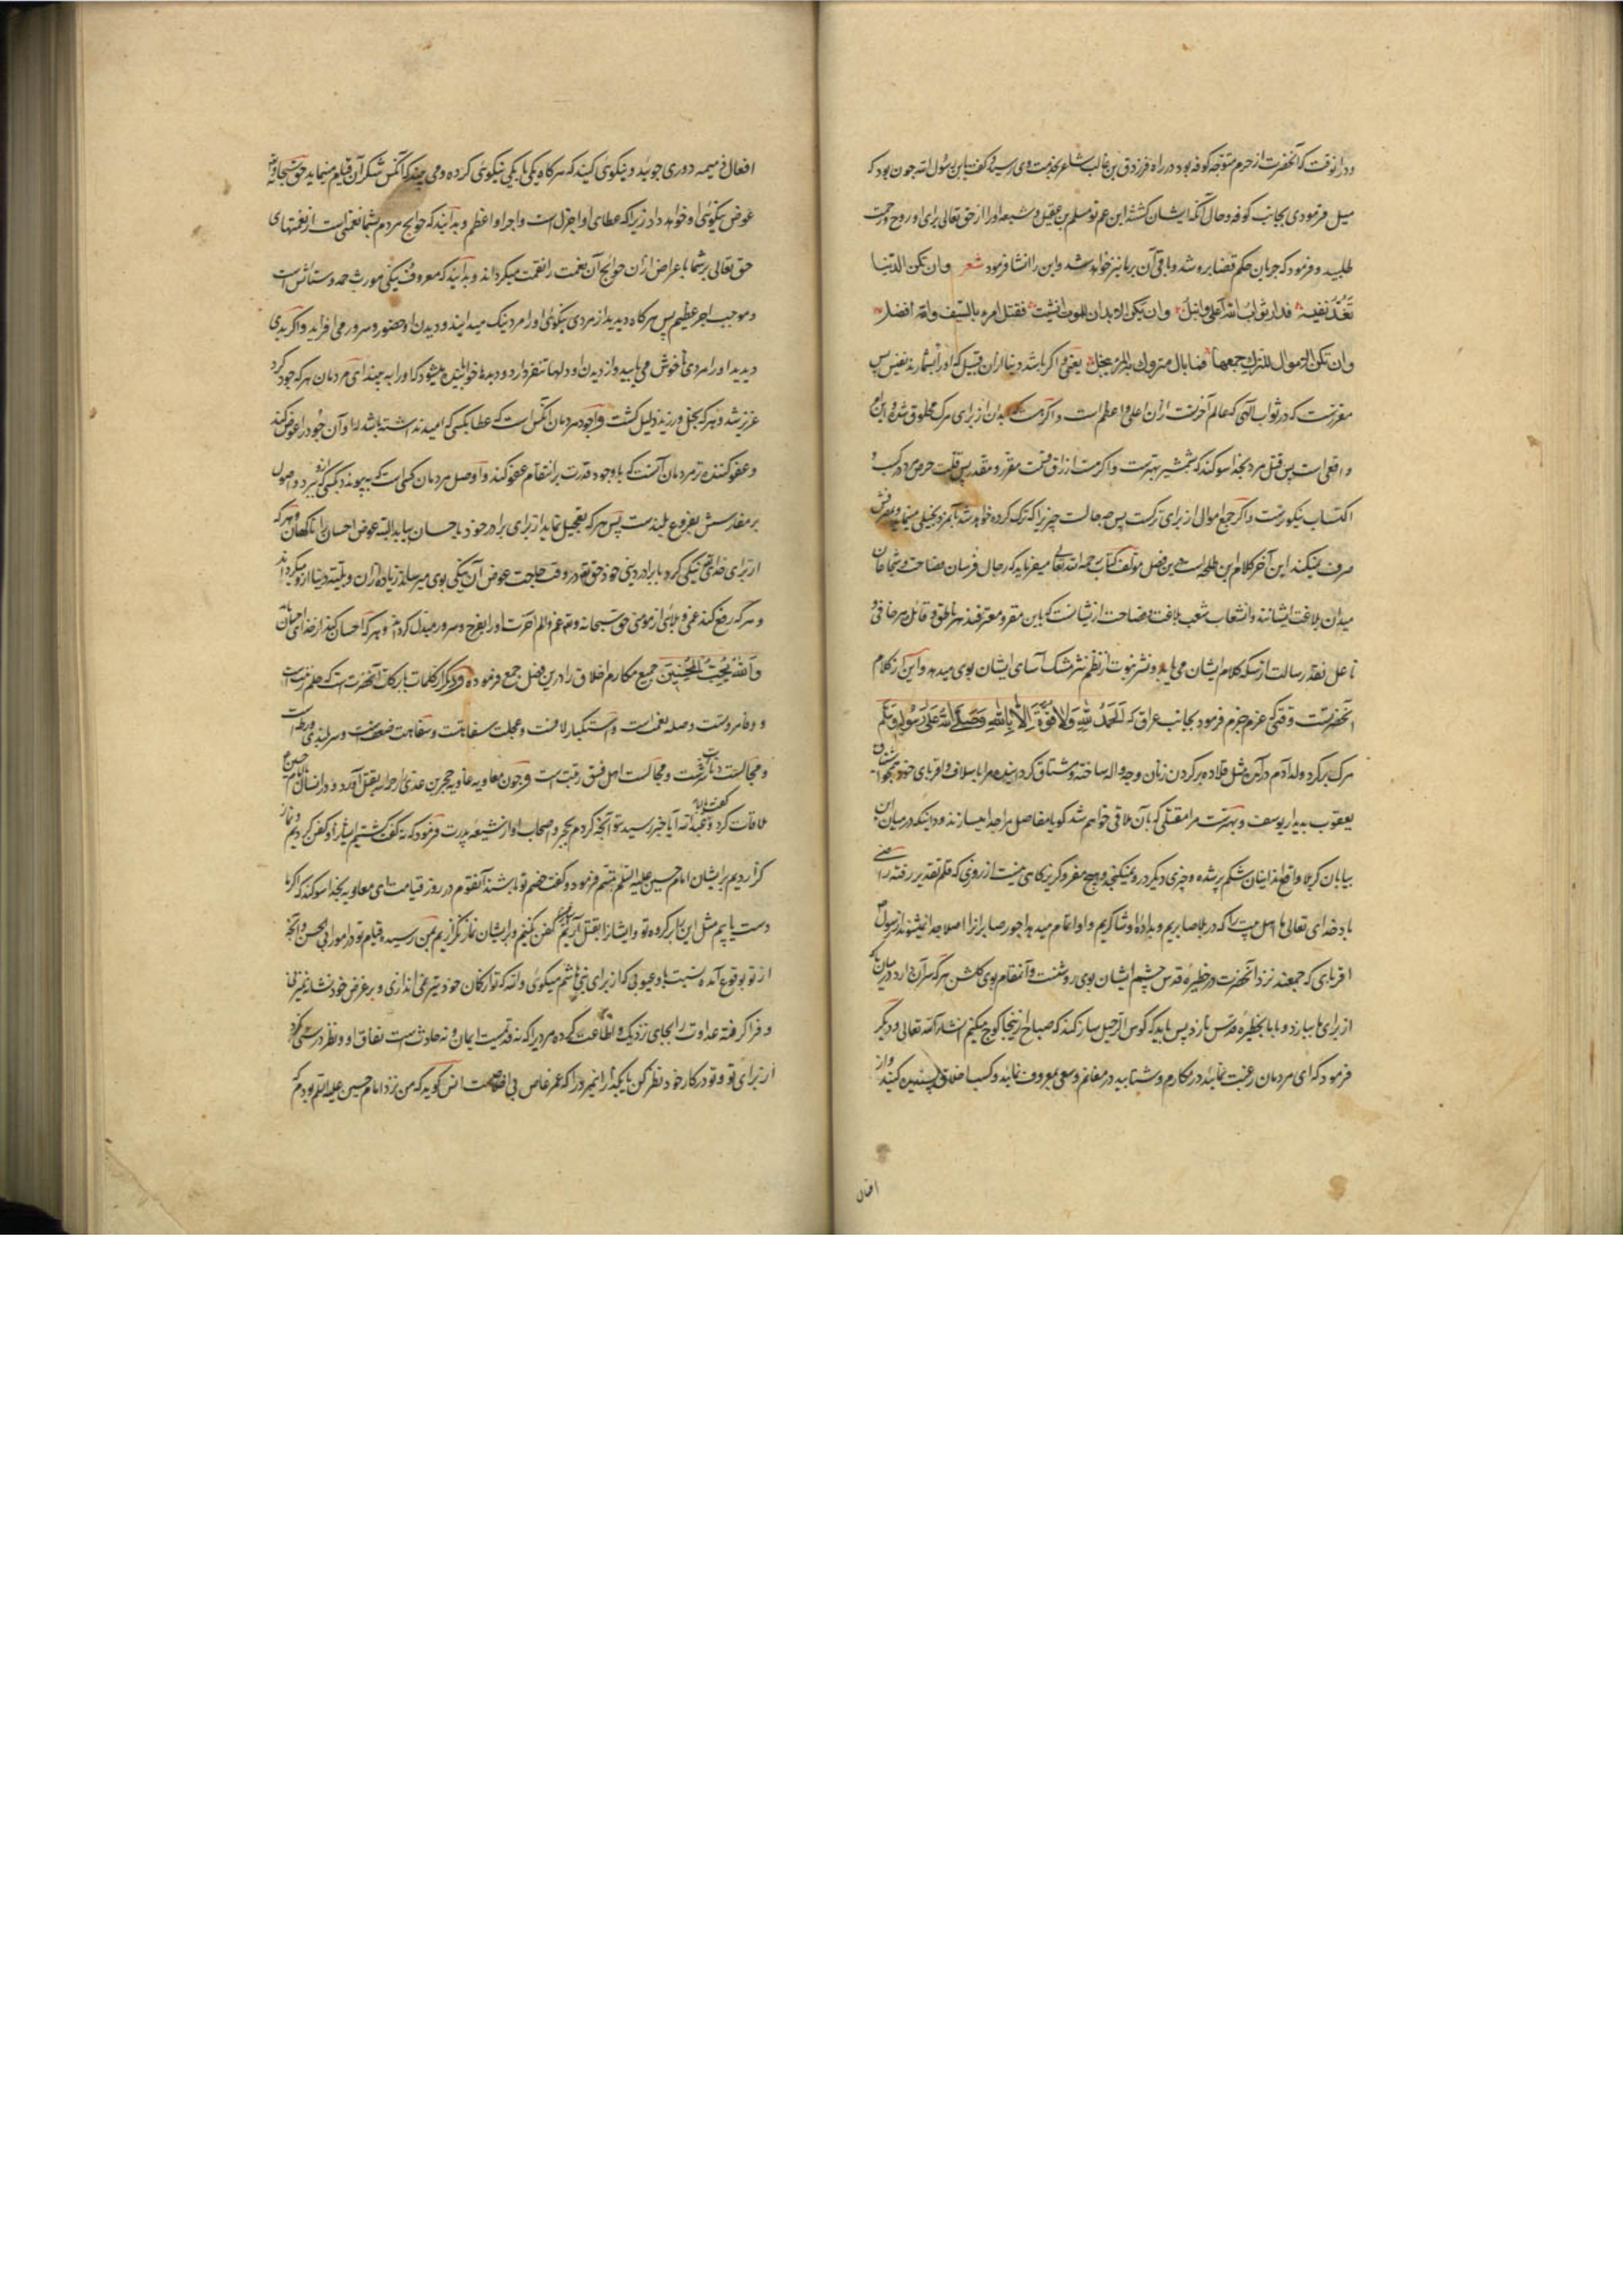 ودرانوقت که آنحضرت از حرم متوجه کوفه بود در راه فرزدق بن غالب شاعر بخدمت وی رسید کفت یابن رسول الله چون بود که
میل فرمودی بجانب کوفه و حال آنکه ایشان کشتند ابن عم تو مسلم بن عقیل و شیعه او را از حق تعالی برای او روح و رحمت
طلبید و فرمود که جریان حکم قضا برو شد و باقی آن بر ما نیز خواهد شد و این را انشا فرمود شعر وان تکن الدنیا
تعد نفیسة فدار ثواب الله اعلی وانبل وان یکن الابدان للموت انشئت فقتل امرء بالسیف والله افضل
وان تکن الاموال للترک جمعها فما بال متروک به المرء یبخل یعنی اکر باشد دنیا از آن قبیل که او را بشمارند نفیس پس
مقررست که در ثواب الهی که عالم آخرتست از آن اعلی و اعظم است و اکر هست که بدان از برای مرک مخلوق شده و این امر
واقعی است پس قتل مرد بخدا سوکند که بشمشیر بهترست و اکر هست ارزاق قسمت مقرر و مقدر پس قلت حرص مرد در کسب و
اکتساب نیکوترست و اکر جمع اموال از برای ترکست پس چه حالت چیزیرا که ترک کرده خواهد شد بآن مرد بخیلی مینماید و بمصرفش
صرف نمیکند این آخر کلام ابن طلحه است درین فصل مولف کتاب رحمه الله تعالی میفرماید که رجال فرسان فصاحت و شجاعان
میدان بلاغت ایشانند و انشعاب شعب بلاغت و فصاحت ازیشانست که باین مقر و معترفند هر ناطق و قائل هر حافی و
ناعل نقد رسالت از سکه کلام ایشان می یابد و نشر نبوت از نظم نثر مشک آسای ایشان بوی میدهد و این از کلام
آنحضرتست وقتی که عزم جزم فرمود بجانب عراق که الحمد لله ولا قوة الا بالله وصلی الله علی رسوله وسلم
مرک بر کرد ولد آدم در آمده مثل قلاده بر کردن زنان و چه واله ساخته و مشتاق کردانیده مرا باسلاف و اقربای خود همچو اشتیاق
یعقوب بدیدار یوسف و بهترست مرا مقتلی که بآن ملاقی خواهم شد کویا مفاصل مرا جدا میسازند و دانیکه در میان این
بیابان کربلا واقع شد ایشان شکم پر شده و چیزی دیکر در و نمیکنجد و هیچ مفر و کریزکاهی نیست از روزی که قلم تقدیر رفته رضی
باد خدای تعالی ما اهل بیت را که در بلا صابریم و بداده او شاکریم و او اتمام میدهد اجور صابرانرا اصلا جدا نمیشوند از رسول
اقربای که جمعند نزد آنحضرت در حظیره قدس چشم ایشان بوی روشنست و انتقام بوی کلشن هر که سر آن دارد در میان که
از برای ما ببازد و با ما بحظیره قدس بنازد پس باید که کوس الرحیل ساز کند که صباح از ینجا کوچ میکنم انشاء الله تعالی و دیکر
فرمود که ای مردمان رغبت نمائید در مکارم و شتابید در مغانم و سعی بمعروف نمائید و کسب اخلاق پسندیده کنید و از
افعال
افعال ذمیمه دوری جوئید و نیکوی کنید که هر کاه یکی با یکی نیکوئی کرده و می بیند که آنکس شکر آن قیام مینماید حق سبحانه و تعالی
عوض نیکوئی او خواهد داد زیرا که عطای او اجزل است و اجر او اعظم و بدانید که حوایج مردم بشما نعمتی است از نعمتهای
حق تعالی بر شما باعراض از آن حوایج آن نعمت را نقمت میکرداند و بدانید که معروف نیکی مورث حمد و ستایش است
و موجب اجر عظیم پس هر کاه دیدید از مردی نیکوئی او را مرد نیک میدانید و دیدن او حضور و سرور می افزاید و اکر بدی
دیدید او را مردی ناخوش می یابید و از دیدن او دلها تنفر دارد و دیدها خوابانیده میشود که او را به بیند ای مردمان هر که جود کرد
عزیز شد و هر که بخل ورزید ذلیل کشت و اجود مردمان آنکس است که عطا بکسی که امید نداشته باشد ازو و آن جود را عوض کند
و عفو کننده تر مردمان آنست که با وجود قدرت بر انتقام عفو کند و اوصل مردمان کسی است که به پیوندد بکسی که ازو ببرد و اصول
بر مغارسش بفروع بلندست پس هر که تعجیل نماید از برای برادر خود باحسان بیابد البته عوض احسان را ناکهان و هر که
از برای خدای تعالی نیکی کرد با برادر دینی خود حق تعالی در وقت حاجت عوض آن نیکی بوی میرساند زیاده از آن و بلیه دنیا ازو میکرداند
و هر که رفع کند غمی و بلائی از مومنی حق سبحانه و تعالی غم و الم آخرت او را بفرح و سرور مبدل کرداند و هر که احسان کند از خدای احسان یابد
والله یحب المحسنین جمیع مکارم اخلاق را درین فصل جمع فرموده و دیکر از کلمات بابرکات آنحضرت است که حلم زینت است
و وفا مروتست و صله نعمت است و استکبار لافست و عجلت سفاهتست و سفاهت ضعفست و سربلندی ورطه است
و مجالست دنائت شرست و مجالست اهل فسق ریبت است و چون معاویه عاویه حجر بن عدی را رحمه الله بقتل آورد و در انسال با امام حسین
ملاقات کرد کفت یا ابا عبدالله آیا خبر رسید بتو آنچه کردم بحجر و اصحاب او از شیعه پدرت فرمود که نه کفت کشتیم ایشانرا و کفن کردیم و نماز
کزاردیم بر ایشان امام حسین علیه السلم تبسم فرمود و کفت خصم تو باشند آنقوم در روز قیامت ای معاویه بخدا سوکند که اکر ما
دست یابیم مثل این بر کروه تو و ایشانرا بقتل آریم کفن نکنیم و بر ایشان نماز نکزاریم بمن رسیده قیام تو در امور ابی الحسن و آنچه
از تو بوقوع آمده نسبت باو و عیوبی که از برای بنی هاشم میکوئی والله که تو از کمان خود تیر می اندازی و بر غرض خود نشانه میزنی
و فرا کرفته عداوت را بجای نزدیک و اطاعت کرده مردیرا که نه قدیمست ایمان و نه حادث است نفاق او و نظر در سستی نکرد
از برای تو و تو در کار خود نظر کن یا بکذار انمردرا که عمرو عاص بی اخلاصست انس کوید که من نزد امام حسین علیه السلم بودم که